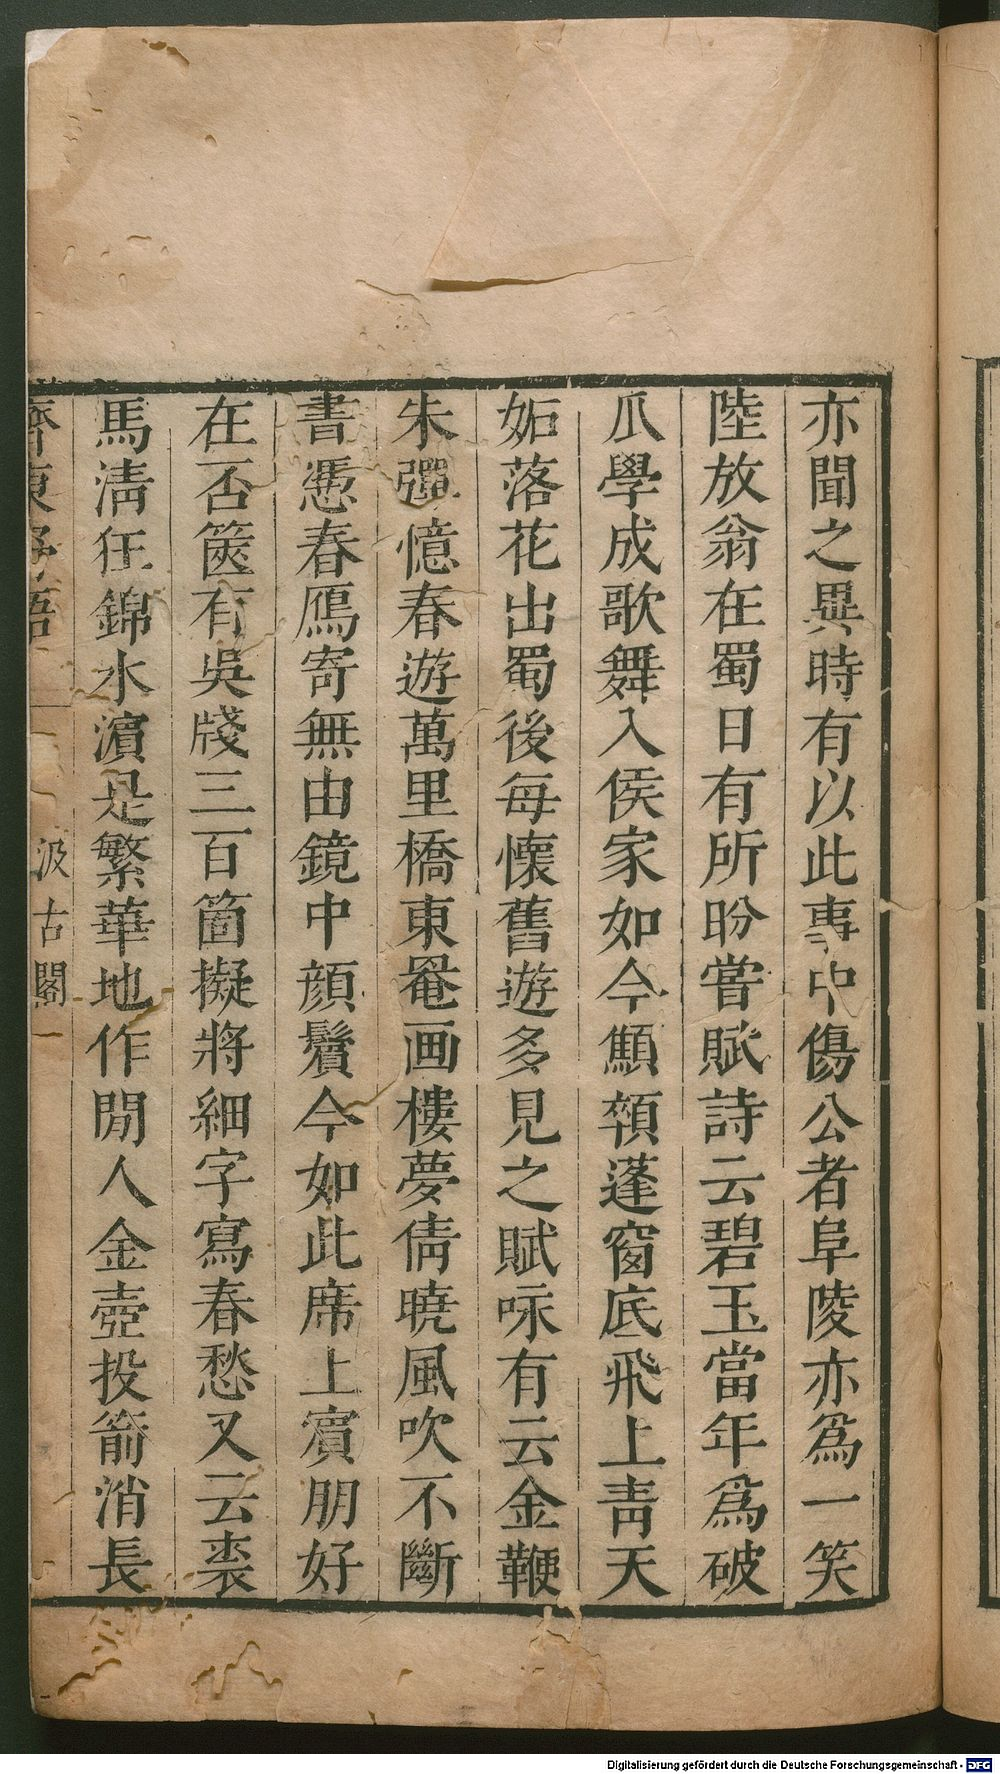 亦聞之異時有以此事中傷公者阜陵亦爲一笑
陸放翁在蜀日有所盼嘗賦詩云碧玉當年爲破
瓜學成歌舞入侯家如今顦顇蓬窗底飛上靑天
妬落花出蜀後每懷舊遊多見之賦咏有云金鞭
朱彈憶春遊萬里橋東罨画樓夢倩曉風吹不斷
書憑春鴈寄無由鏡中顔鬢今如此席上賓朋好
在否篋有吳牋三百箇擬將細字寫春愁又云裘
馬淸狂錦水濵是繁華地作閒人金壺投箭消長
齊東野語
汲古閣
Digitalisierung gefördert durch die Deutsche Forschungsgemeinschaft - DFG